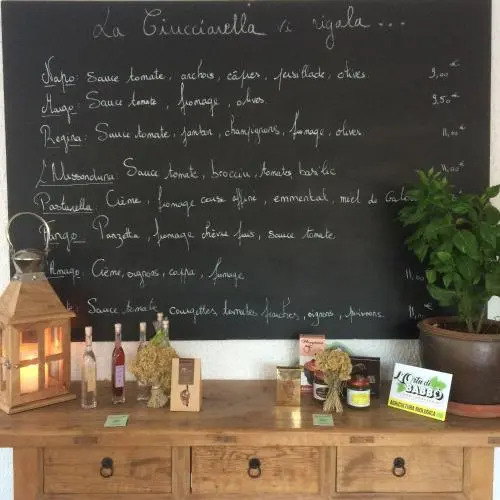 La Ciucciarella vi rigala ...
Napo: Sauce tomate, anchois, câpres, persillade, olives. 9,00€
Margo: Sauce tomate, fromage, olives. 9,50€
Regina: Sauce tomate, jambon, champignons, fromage, olives. 11,00€
Sauce tomate, brocciu, tomates, basilic 11,00€
Pasturella: Crème, fromage corse affiné, emmental, miel de
Fango: Panzetta, fromage chèvre frais, sauce tomate.
Amago: Crème, oignons, coppa, fumage 11,00
Sauce tomate, courgettes, tomates fraîches, oignons, poivrons. 11,
L'Ortu di
BABBO
AGRICULTURA BIOLOGICA